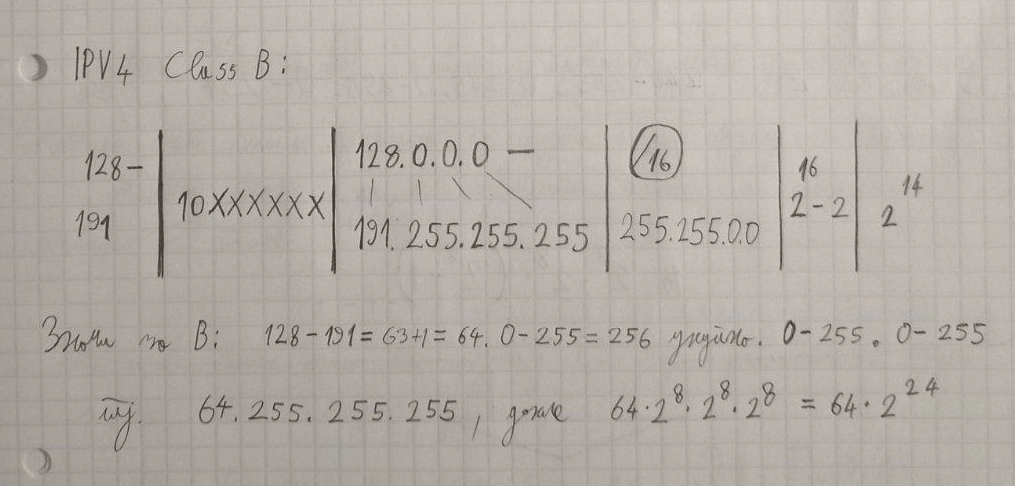 IPV4 Class B:
128 –
191
10XXXXXX
128.0.0.0 —
191.255.255.255
/16
255.255.0.0
2¹⁶ - 2
2¹⁴
Значи B: 128 – 191 = 63+1 = 64. 0 – 255 = 256 укупно. 0 – 255. 0 – 255
тј. 64.255.255.255, дакле 64·2⁸·2⁸·2⁸ = 64·2²⁴